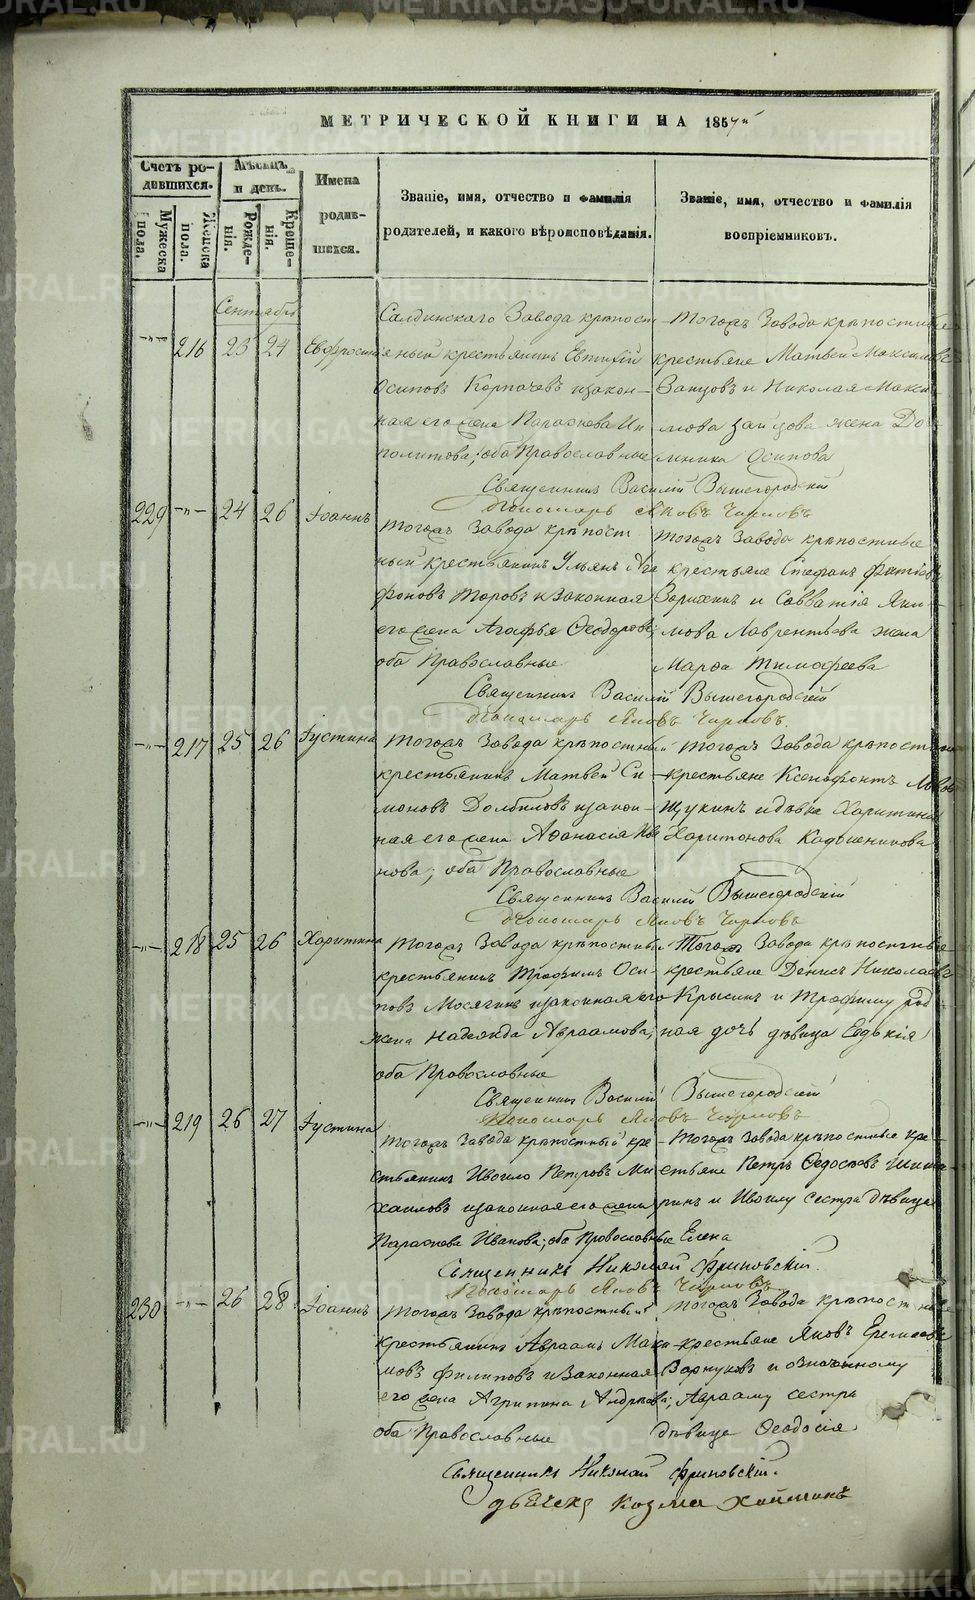 МЕТРИЧЕСКОЙ КНИГИ НА 1857й
Счетъ ро-
дившихся.
Мужеска пола.
Женска пола.
Мѣсяцъ и день.
Рожде-
нія.
Креще-
нія.
Имена
родив-
шихся.
Званіе, имя, отчество и фамилія
родителей, и какого вѣроисповѣданія.
Званіе, имя, отчество и фамилія
воспріемниковъ.
Сентябрь
216 23 24
Салдинскаго Завода крѣпост-
ный крестьянинъ Евтифій
Осиповъ Карпачевъ и закон-
ная его жена Параскева Ип
политова; оба Православные
Тогожъ Завода крѣпостные
крестьяне Матвей Максимовъ
Зайцовъ и Николая Макси
мова Зайцова жена До
мника Осипова
Священникъ Василій Вышегородскій
Пономарь Яковъ
229 24 26 Іоаннъ
Тогожъ Завода крѣпост
ный крестьянинъ Ульянъ Ага
фоновъ Торовъ и законная
его жена Агафья Ѳеодорова;
оба Православные
Тогожъ Завода крѣпостные
крестьяне Стефанъ
и Савватія Яки-
мова Лаврентьева жена
Марѳа Тимофеева
Священникъ Василій Вышегородскій
Пономарь Яковъ
217 25 26 Іустина
Тогожъ Завода крѣпостный
крестьянинъ Матвей Си
моновъ Долбиловъ и закон-
ная его жена Аѳанасія Ива
нова; оба Православные
Тогожъ Завода крѣпостные
крестьяне Ксенофонтъ
Щукинъ и дѣвка Харитина
Харитонова
Священникъ Василій Вышегородскій
Пономарь Яковъ
218 25 26 Харитина
Тогожъ Завода крѣпостный
крестьянинъ Трофимъ Оси-
повъ Мосягинъ и законная его
жена Надежда Авраамова;
оба Православные
Тогожъ Завода крѣпостные
крестьяне Денисъ Николаевъ
Крысинъ и Трофиму род
ная дочь дѣвица Евдокія
Священникъ Василій Вышегородскій
Пономарь Яковъ
219 26 27 Іустина
Тогожъ Завода крѣпостный кре-
стьянинъ Ивоило Петровъ Ми
хаиловъ и законная его жена
Параскева Иванова; оба Православные
Тогожъ Завода крѣпостные кре-
стьяне Петръ Ѳедосѣевъ
и Ивоилу сестра дѣвица
Елена
Священникъ Николай Фриновскій.
Пономарь Яковъ
230 26 28 Іоаннъ
Тогожъ Завода крѣпостный
крестьянинъ Авраамъ Макси
мовъ Филиповъ и Законная
его жена Агрипина Андреева;
оба Православные
Тогожъ Завода крѣпостные
крестьяне Яковъ
и означенному
Аврааму сестра
дѣвица Ѳеодосія
Священникъ Николай Фриновскій.
дьячекъ Козма
METRIKI.GASO-URAL.RU